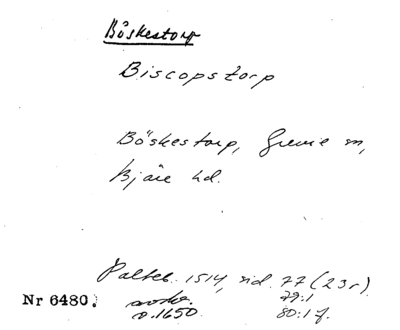 Böskestorp
Biscopstorp
Böskestorp, Grevie sn,
Bjäre hd.
Palteb. 1514, sid. 77 (23r)
79:1
Nr 6480. v.1650 80:1 f.